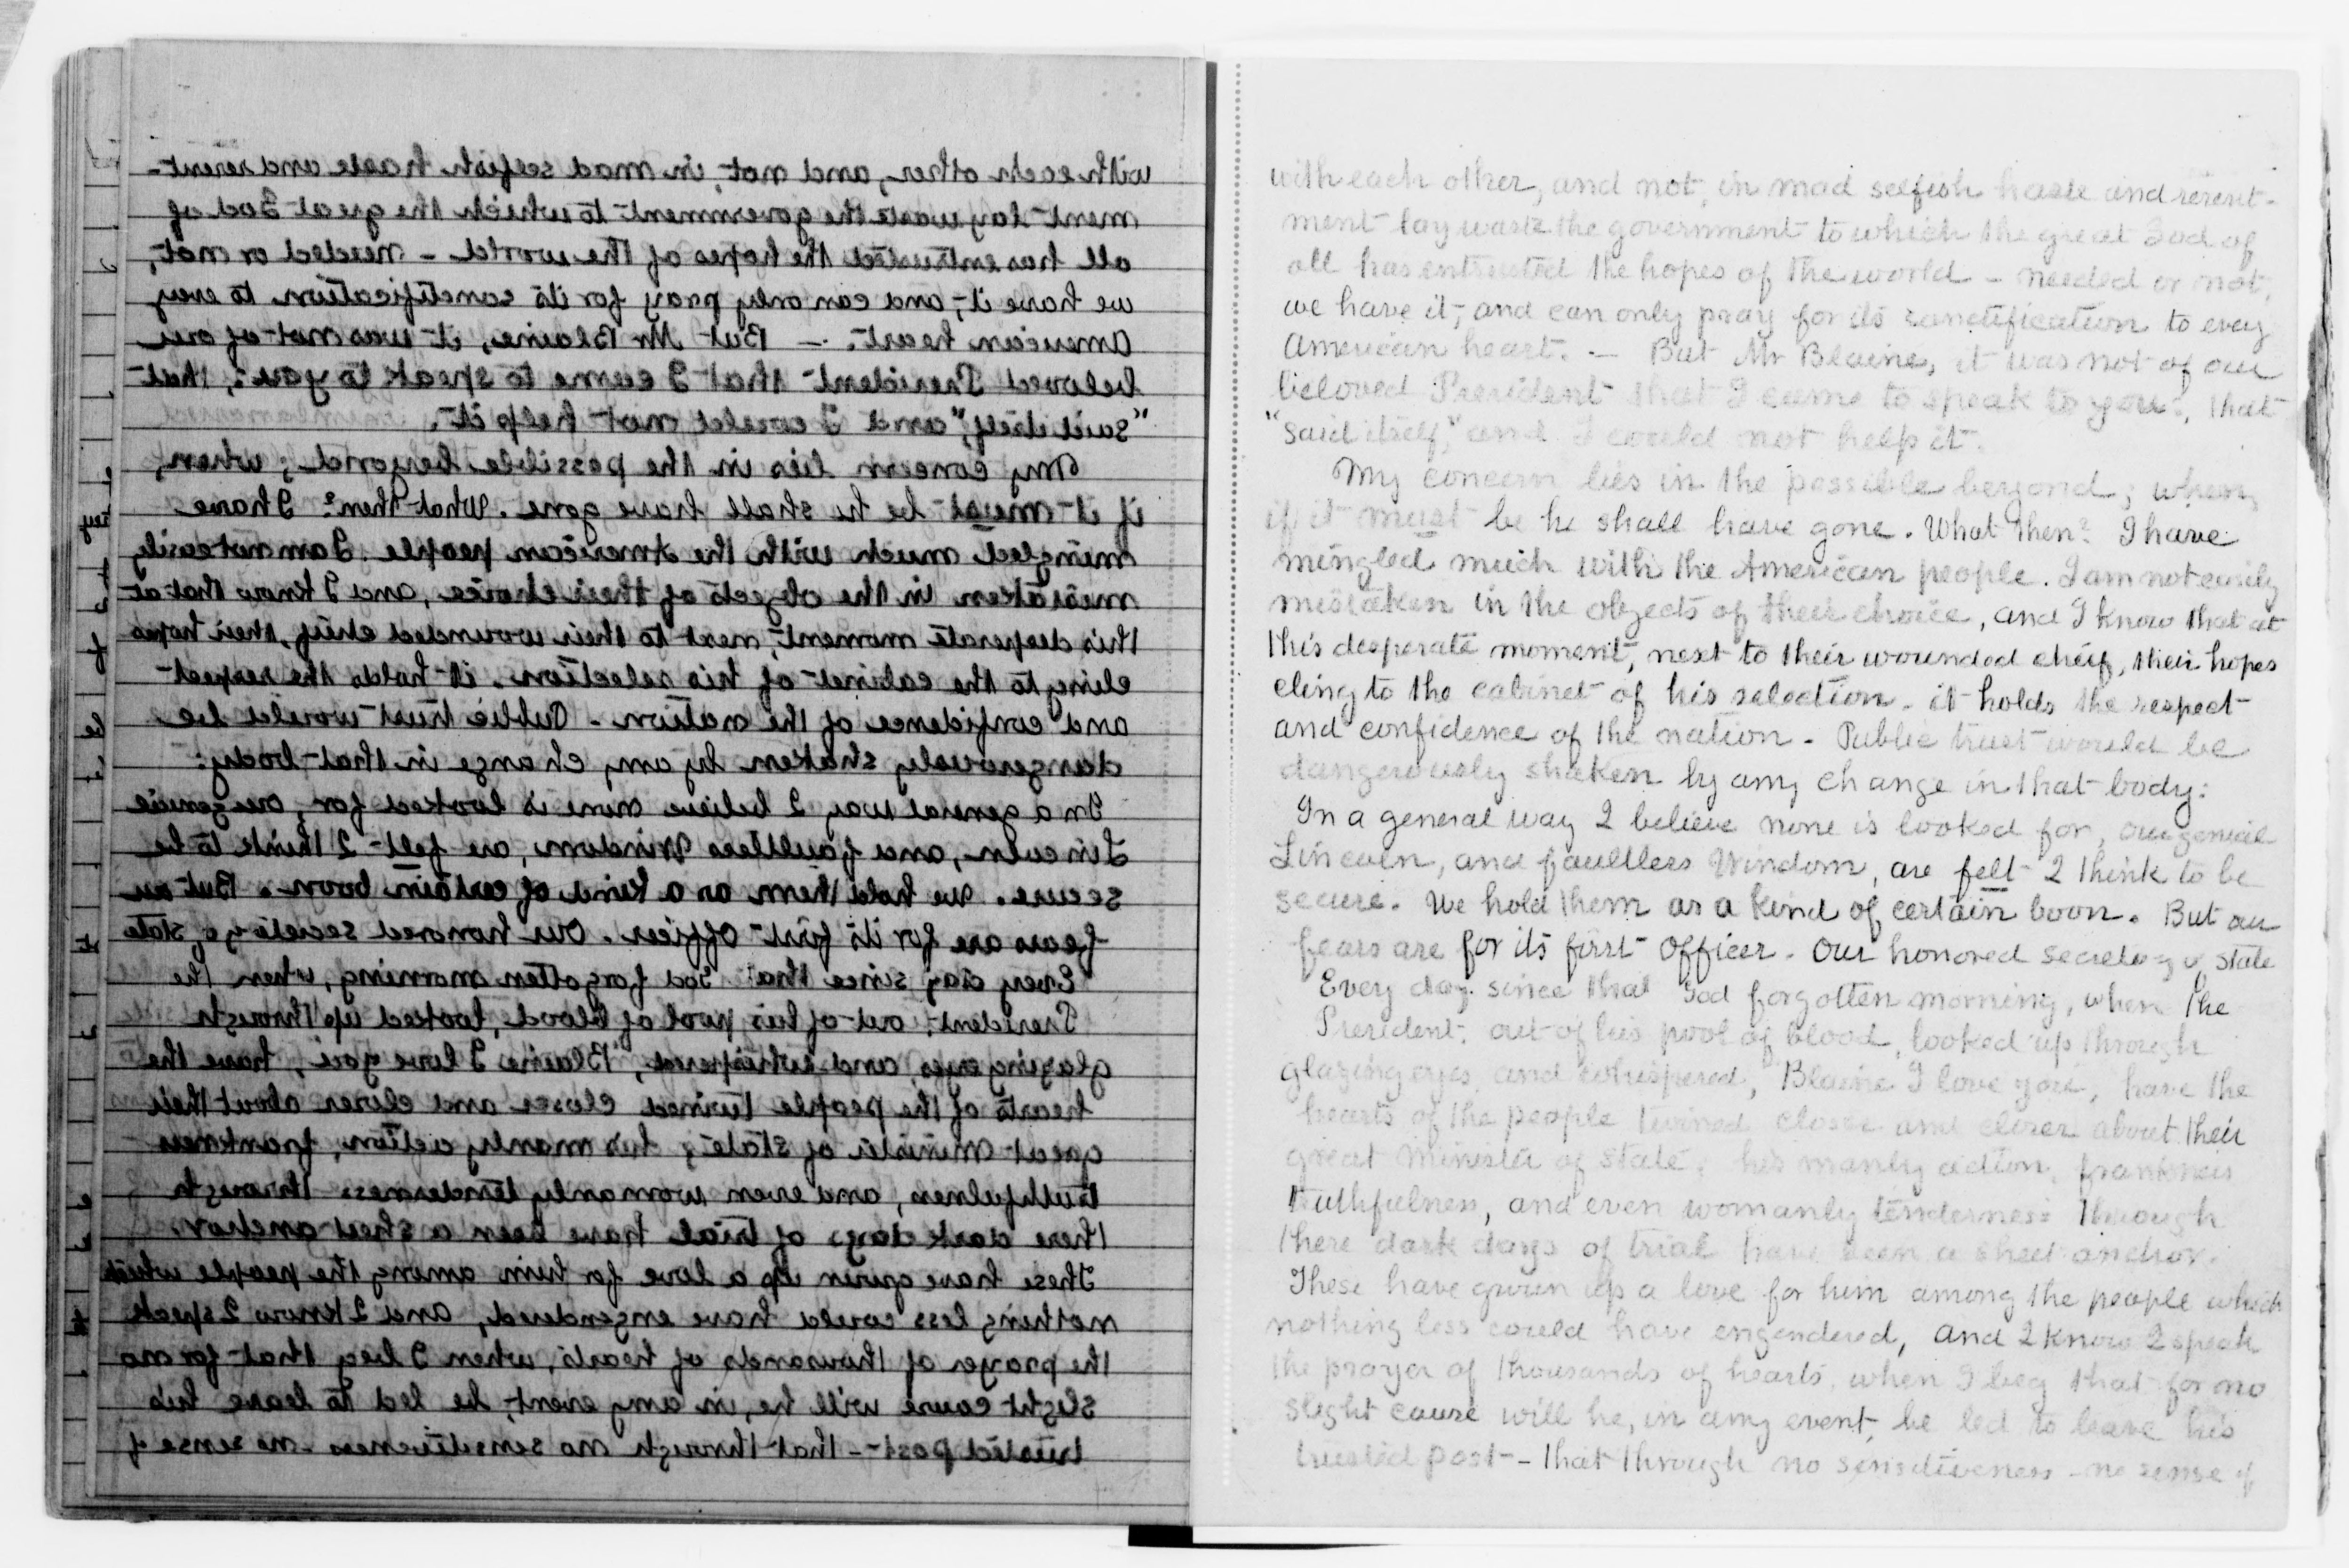 with each other, and not, in mad selfish haste and resent-
ment lay waste the government to which the great God of
all has entrusted the hopes of the world - needed or not,
we have it, and can only pray for its sanctification to every
American heart. — But Mr Blaine, it was not of our
beloved President that I came to speak to you:, that
"said itself," and I could not help it.
My concern lies in the possible beyond; when,
if it must be he shall have gone. What then? I have
mingled much with the American people. I am not easily
mistaken in the objects of their choice, and I know that at
this desperate moment, next to their wounded chief, their hopes
cling to the cabinet of his selection. it holds the respect
and confidence of the nation - Public trust would be
dangerously shaken by any change in that body:
In a general way I believe none is looked for, our genial
Lincoln, and faultless Windom, are felt I think to be
secure. We hold them as a kind of certain boon. But our
fears are for its first officer. Our honored secretary of state
Every day since that God forgotten morning, when the
President, out of his pool of blood, looked up through
glazing eyes and whispered, "Blaine I love you", have the
hearts of the people twined closer and closer about their
great Minister of state; his manly action, frankness
truthfulness, and even womanly tenderness through
these dark days of trial have been a sheet anchor.
These have grown up a love for him among the people which
nothing less could have engendered, and I know I speak
the prayer of thousands of hearts, when I beg that for no
slight cause will he, in any event, be led to leave his
trusted post - that through no sensitiveness - no sense of